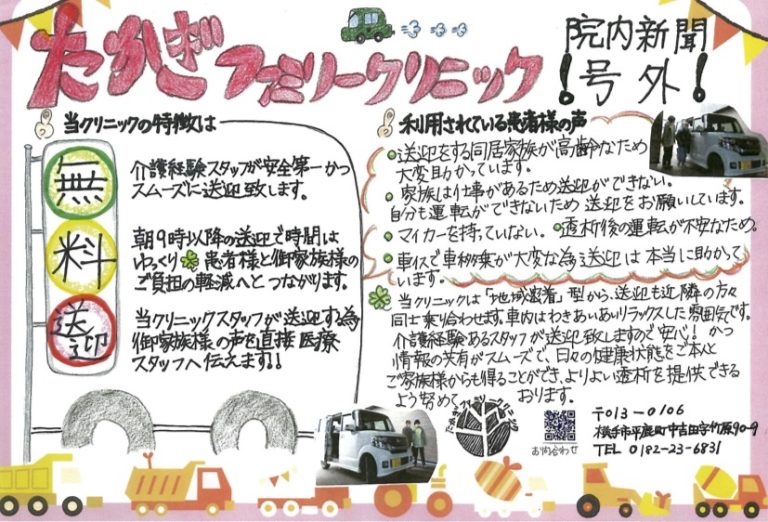 たかぎファミリークリニック
院内新聞
号外!!
当クリニックの特徴は
無料送迎
介護経験スタッフが安全第一かつ
スムーズに送迎致します。
朝9時以降の送迎で時間は
ゆっくり患者様と御家族様の
ご負担の軽減へとつながります。
当クリニックスタッフが送迎する為
御家族様の声を直接医療
スタッフへ伝えます!!
利用されている患者様の声
送迎をする同居家族が高齢なため
大変助かっています。
家族は仕事があるため送迎ができない。
自分も運転ができないため送迎をお願いしています。
マイカーを持っていない。透析後の運転が不安なため。
車イスで車の乗が大変な為送迎は本当に助かって
います。
当クリニックは「地域密着」型から、送迎も近隣の方々
同士乗り合わせます。車内はわきあいあいリラックスした雰囲気です。
介護経験あるスタッフが送迎致しますので安心!かつ
情報の共有がスムーズで、日々の健康状態をご本人と
ご家族様からも得ることができ、よりよい透析を提供できる
よう努めております。
お問合わせ
〒013-0106
横手市平鹿町中吉田字竹原90-9
TEL 0182-23-6831